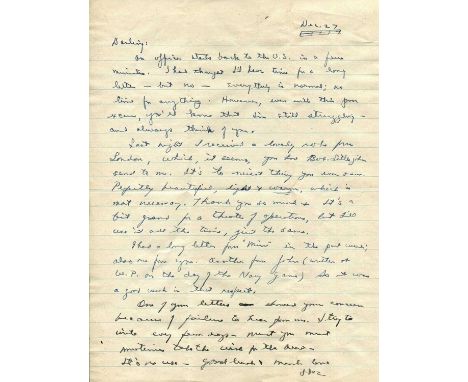 Dec. 27
Darling:
An officer starts back to the U.S. in a few
minutes. I had thought I'd have time for a long
letter — but no — everything is normal; no
time for anything. However, even with this poor
scrawl, you'll know that I'm still struggling —
and always think of you.
Last night I received a lovely robe from
London, which, it seems, you had
send to me. It's the nicest thing you ever saw.
Perfectly beautiful, light & warm, which is
most necessary. Thank you so much. It's a
bit grand for a theatre of operations, but I'll
use it all the time, just the same.
I had a long letter from "Min" in the past week;
also one from you. Another from John (written at
W.P. on the day of the Navy game) So it was
a good week in that respect.
One of your letters showed your concern
because of failure to hear from me. I try to
write every few days — but you must
sometimes take the wish for the deed —
It's no use — Good luck & much love
Ike